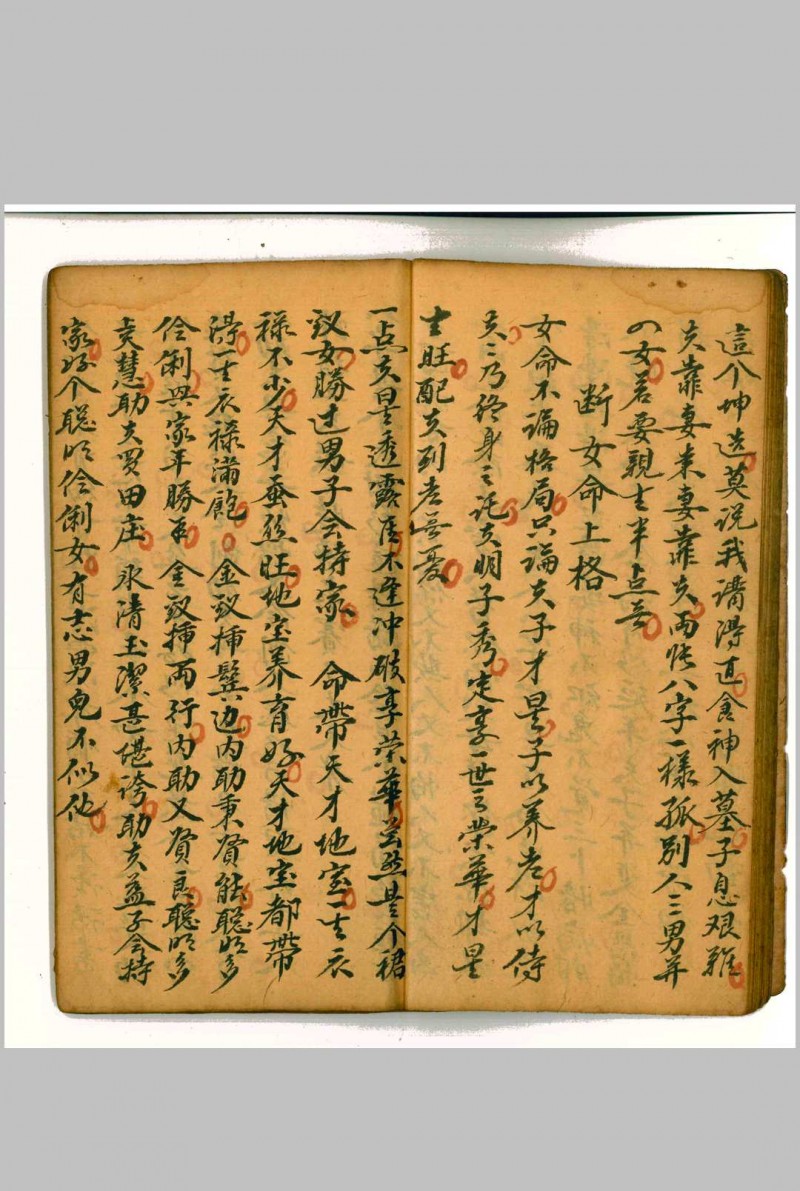 這个坤造莫说我講得直食神入墓子息艰難
夫靠妻来妻靠夫两帐八字一樣孤別人三男并
四女若要親生半点無
断女命上格
女命不論格局只論夫子才是子以养老才以侍
夫夫乃終身之託夫明子秀定享一世之荣華才星
生旺配夫到老無憂
一点夫星透露唐不逢冲破享荣華並然是个裙
釵女勝过男子会持家 命帶天才地室一生衣
禄不少天才蚕丝旺地室养育好天才地室都帶
得一生衣禄滿飽 金釵揷鬓边内助秉贤能聪明多
伶俐興家年勝 金釵揷两行内助又賢良聪明多
賢慧助夫买田庄 永清玉潔甚堪誇助夫益子会持
家好个聪明伶俐女有志男兒不似他